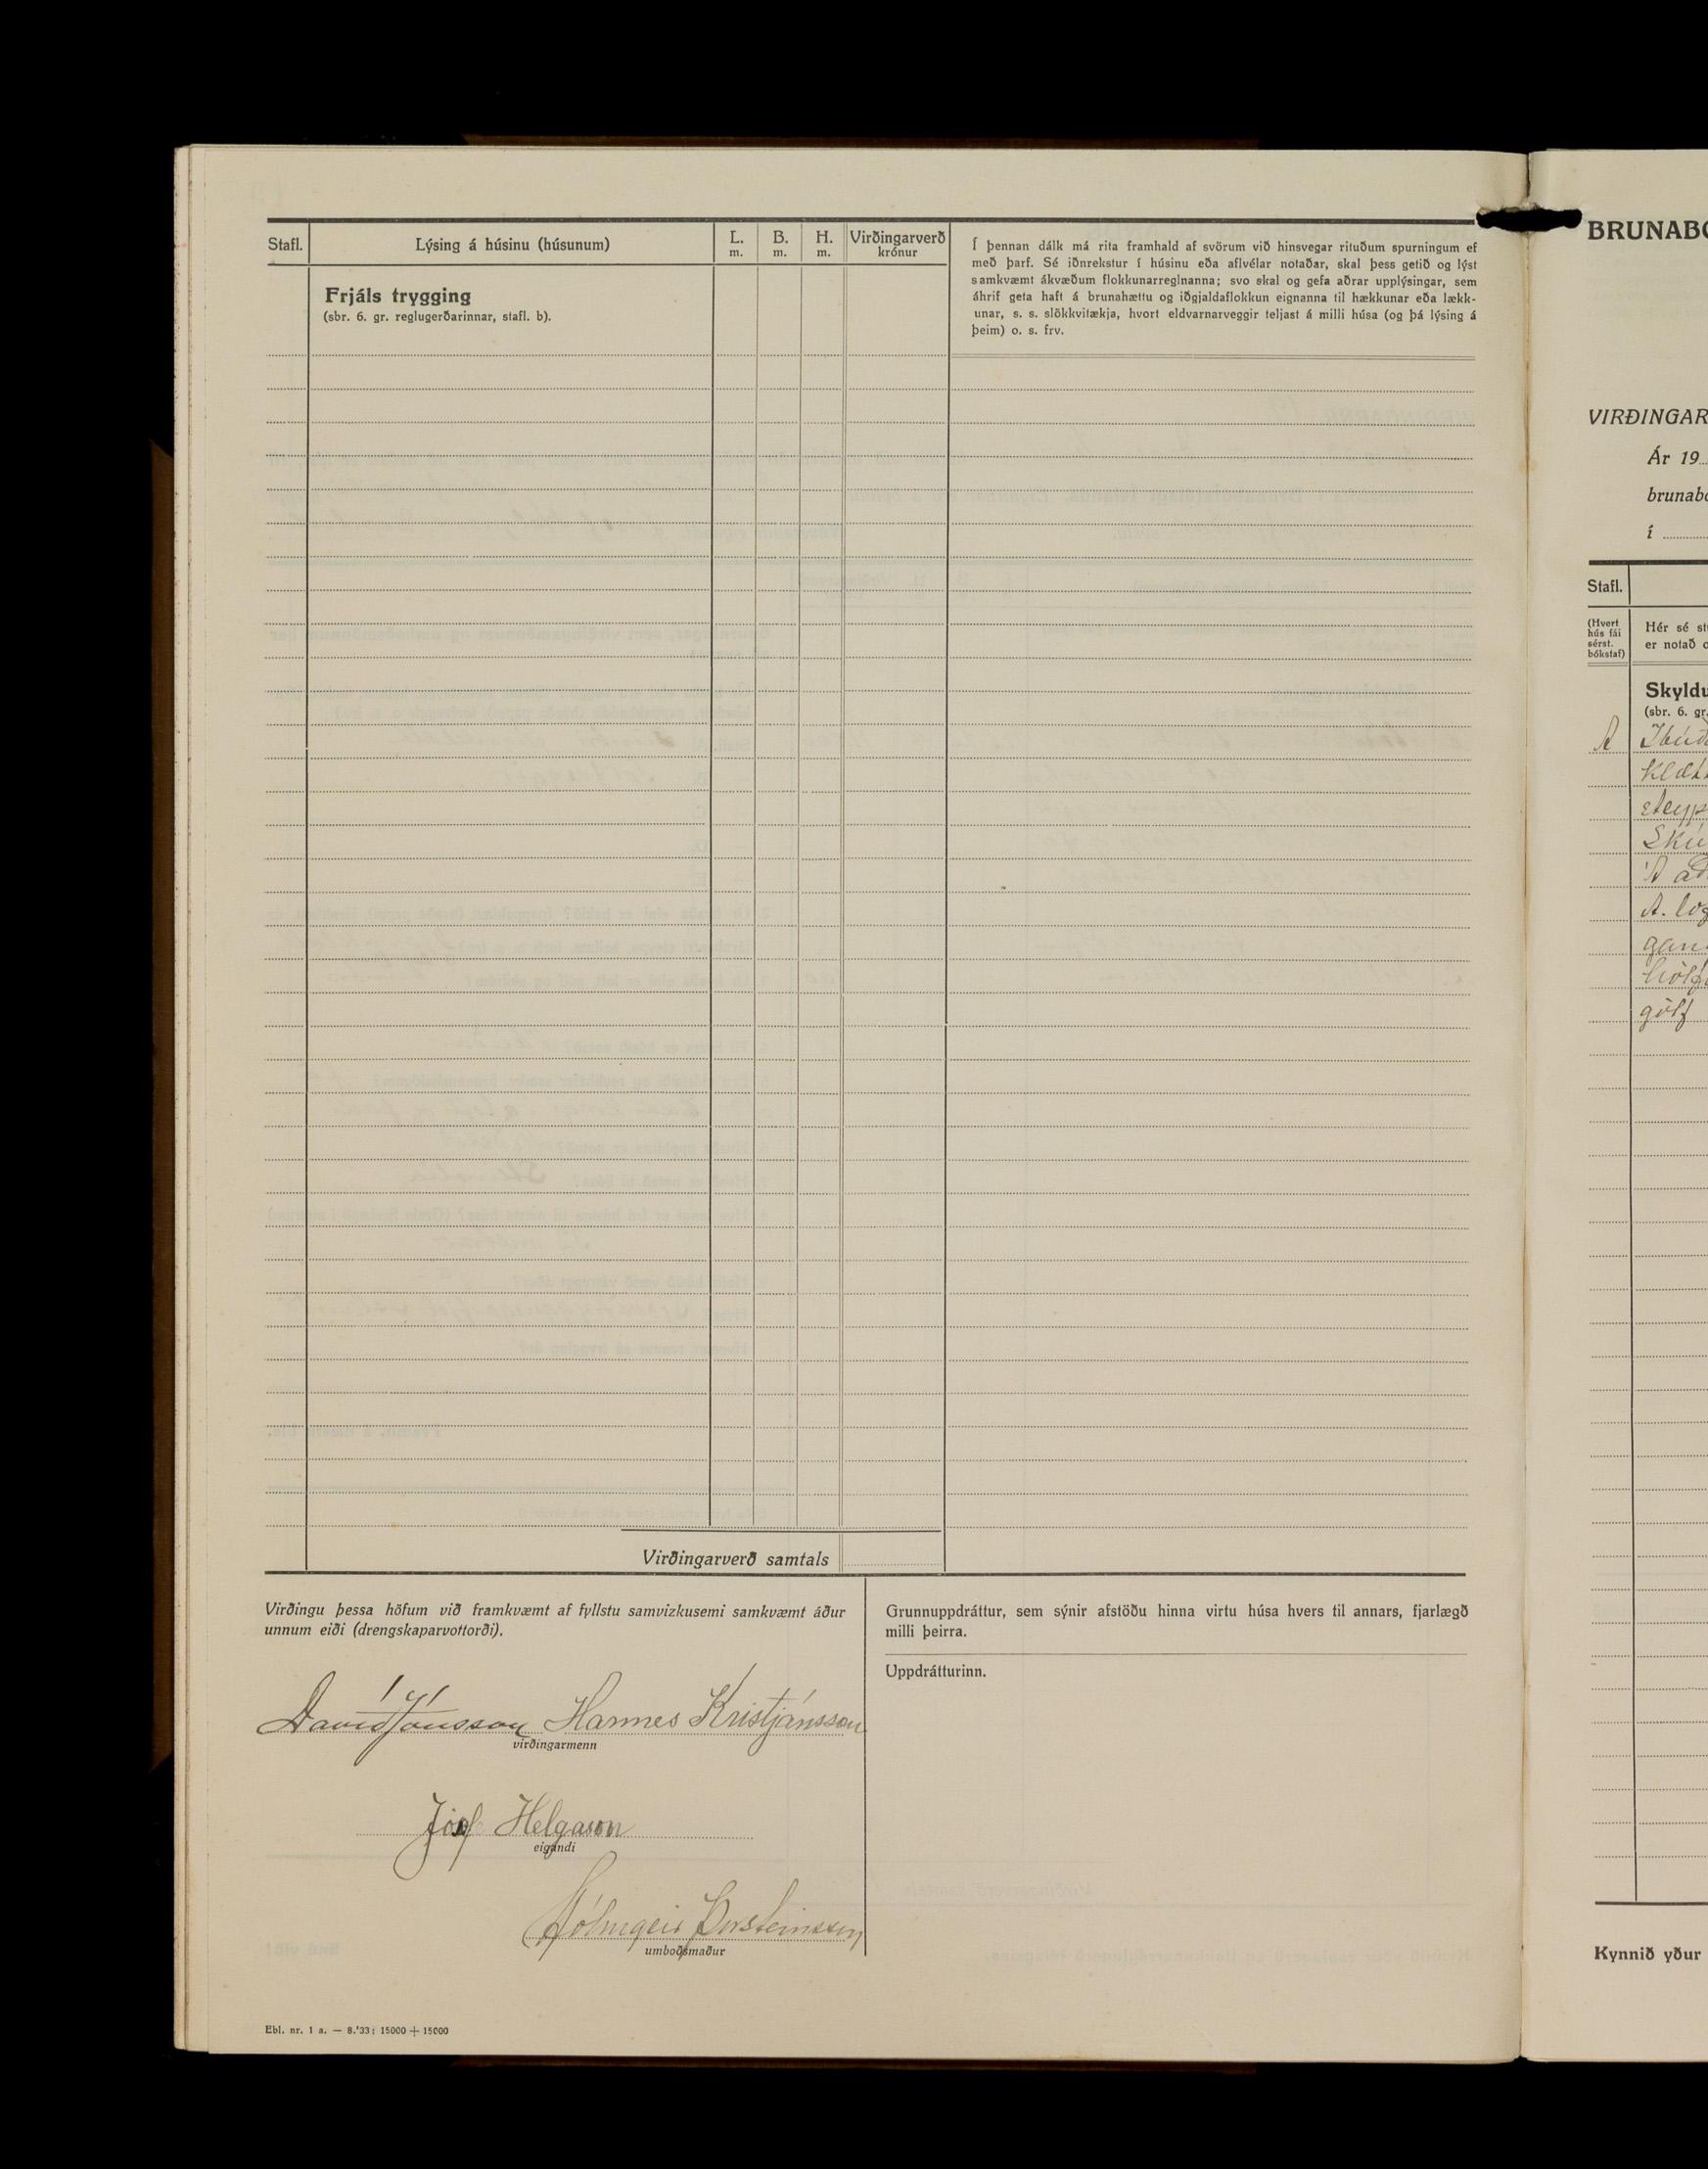 Stafl.
Lýsing á húsinu (húsunum)
L.
m.
B.
m.
H.
m.
Virðingarverð
krónur
Í þennan dálk má rita framhald af svörum við hinsvegar rituðum spurningum ef
með þarf. Sé iðnrekstur í húsinu eða aflvélar notaðar, skal þess getið og lýst
samkvæmt ákvæðum flokkunarreglnanna; svo skal og gefa aðrar upplýsingar, sem
áhrif geta haft á brunahættu og iðgjaldaflokkun eignanna til hækkunar eða lækk-
unar, s. s. slökkvitækja, hvort eldvarnarveggir teljast á milli húsa (og þá lýsing á
þeim) o. s. frv.
Frjáls trygging
(sbr. 6. gr. reglugerðarinnar, stafl. b).
Virðingarverð samtals
Virðingu þessa höfum við framkvæmt af fyllstu samvizkusemi samkvæmt áður
unnum eiði (drengskaparvottorði).
Davíð Jónsson Hannes Kristjánsson
virðingarmenn
Jósef Helgason
eigandi
Hólmgeir Þorsteinsson
umboðsmaður
Grunnuppdráttur, sem sýnir afstöðu hinna virtu húsa hvers til annars, fjarlægð
milli þeirra.
Uppdrátturinn.
Ebl. nr. 1 a. — 8.'33: 15000 + 15000
BRUNABO
VIRÐINGAR
Ár 19
brunabo
í
Stafl.
(Hvert
hús fái
sérst.
bókstaf)
Hér sé st
er notað o
Skyldu
(sbr. 6. gr.
A
Íbúð
klæt
steyp
Skú
Á að
A. log
gan
hólf
gólf
Kynnið yður